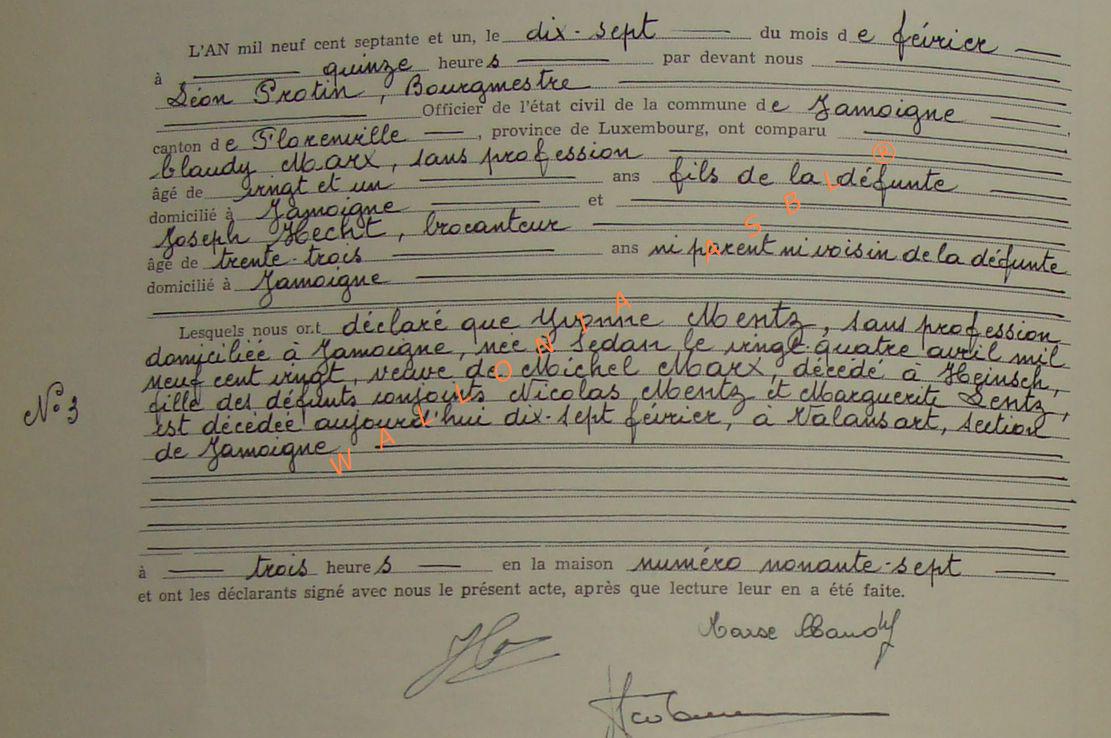 L'AN mil neuf cent septante et un, le dix-sept du mois de février
à quinze heures par devant nous
Léon Protin, Bourgmestre
Officier de l'état civil de la commune de Jamoigne,
canton de Florenville, province de Luxembourg, ont comparu
Claudy Marx, sans profession
âgé de vingt et un ans fils de la défunte
domicilié à Jamoigne et
Joseph Hecht, brocanteur
âgé de trente-trois ans ni parent ni voisin de la défunte
domicilié à Jamoigne
Lesquels nous ont déclaré que Yvonne Mentz, sans profession
domiciliée à Jamoigne, née à Sedan le vingt-quatre avril mil
neuf cent vingt, veuve de Michel Marx, décédé à Heinsch,
N° 3
fille des défunts conjoints Nicolas Mentz et Marguerite Lentz,
est décédée aujourd'hui dix-sept février, à Valansart, section
de Jamoigne
à trois heures en la maison numéro nonante-sept
et ont les déclarants signé avec nous le présent acte, après que lecture leur en a été faite.
WALLONIA ASBL ®